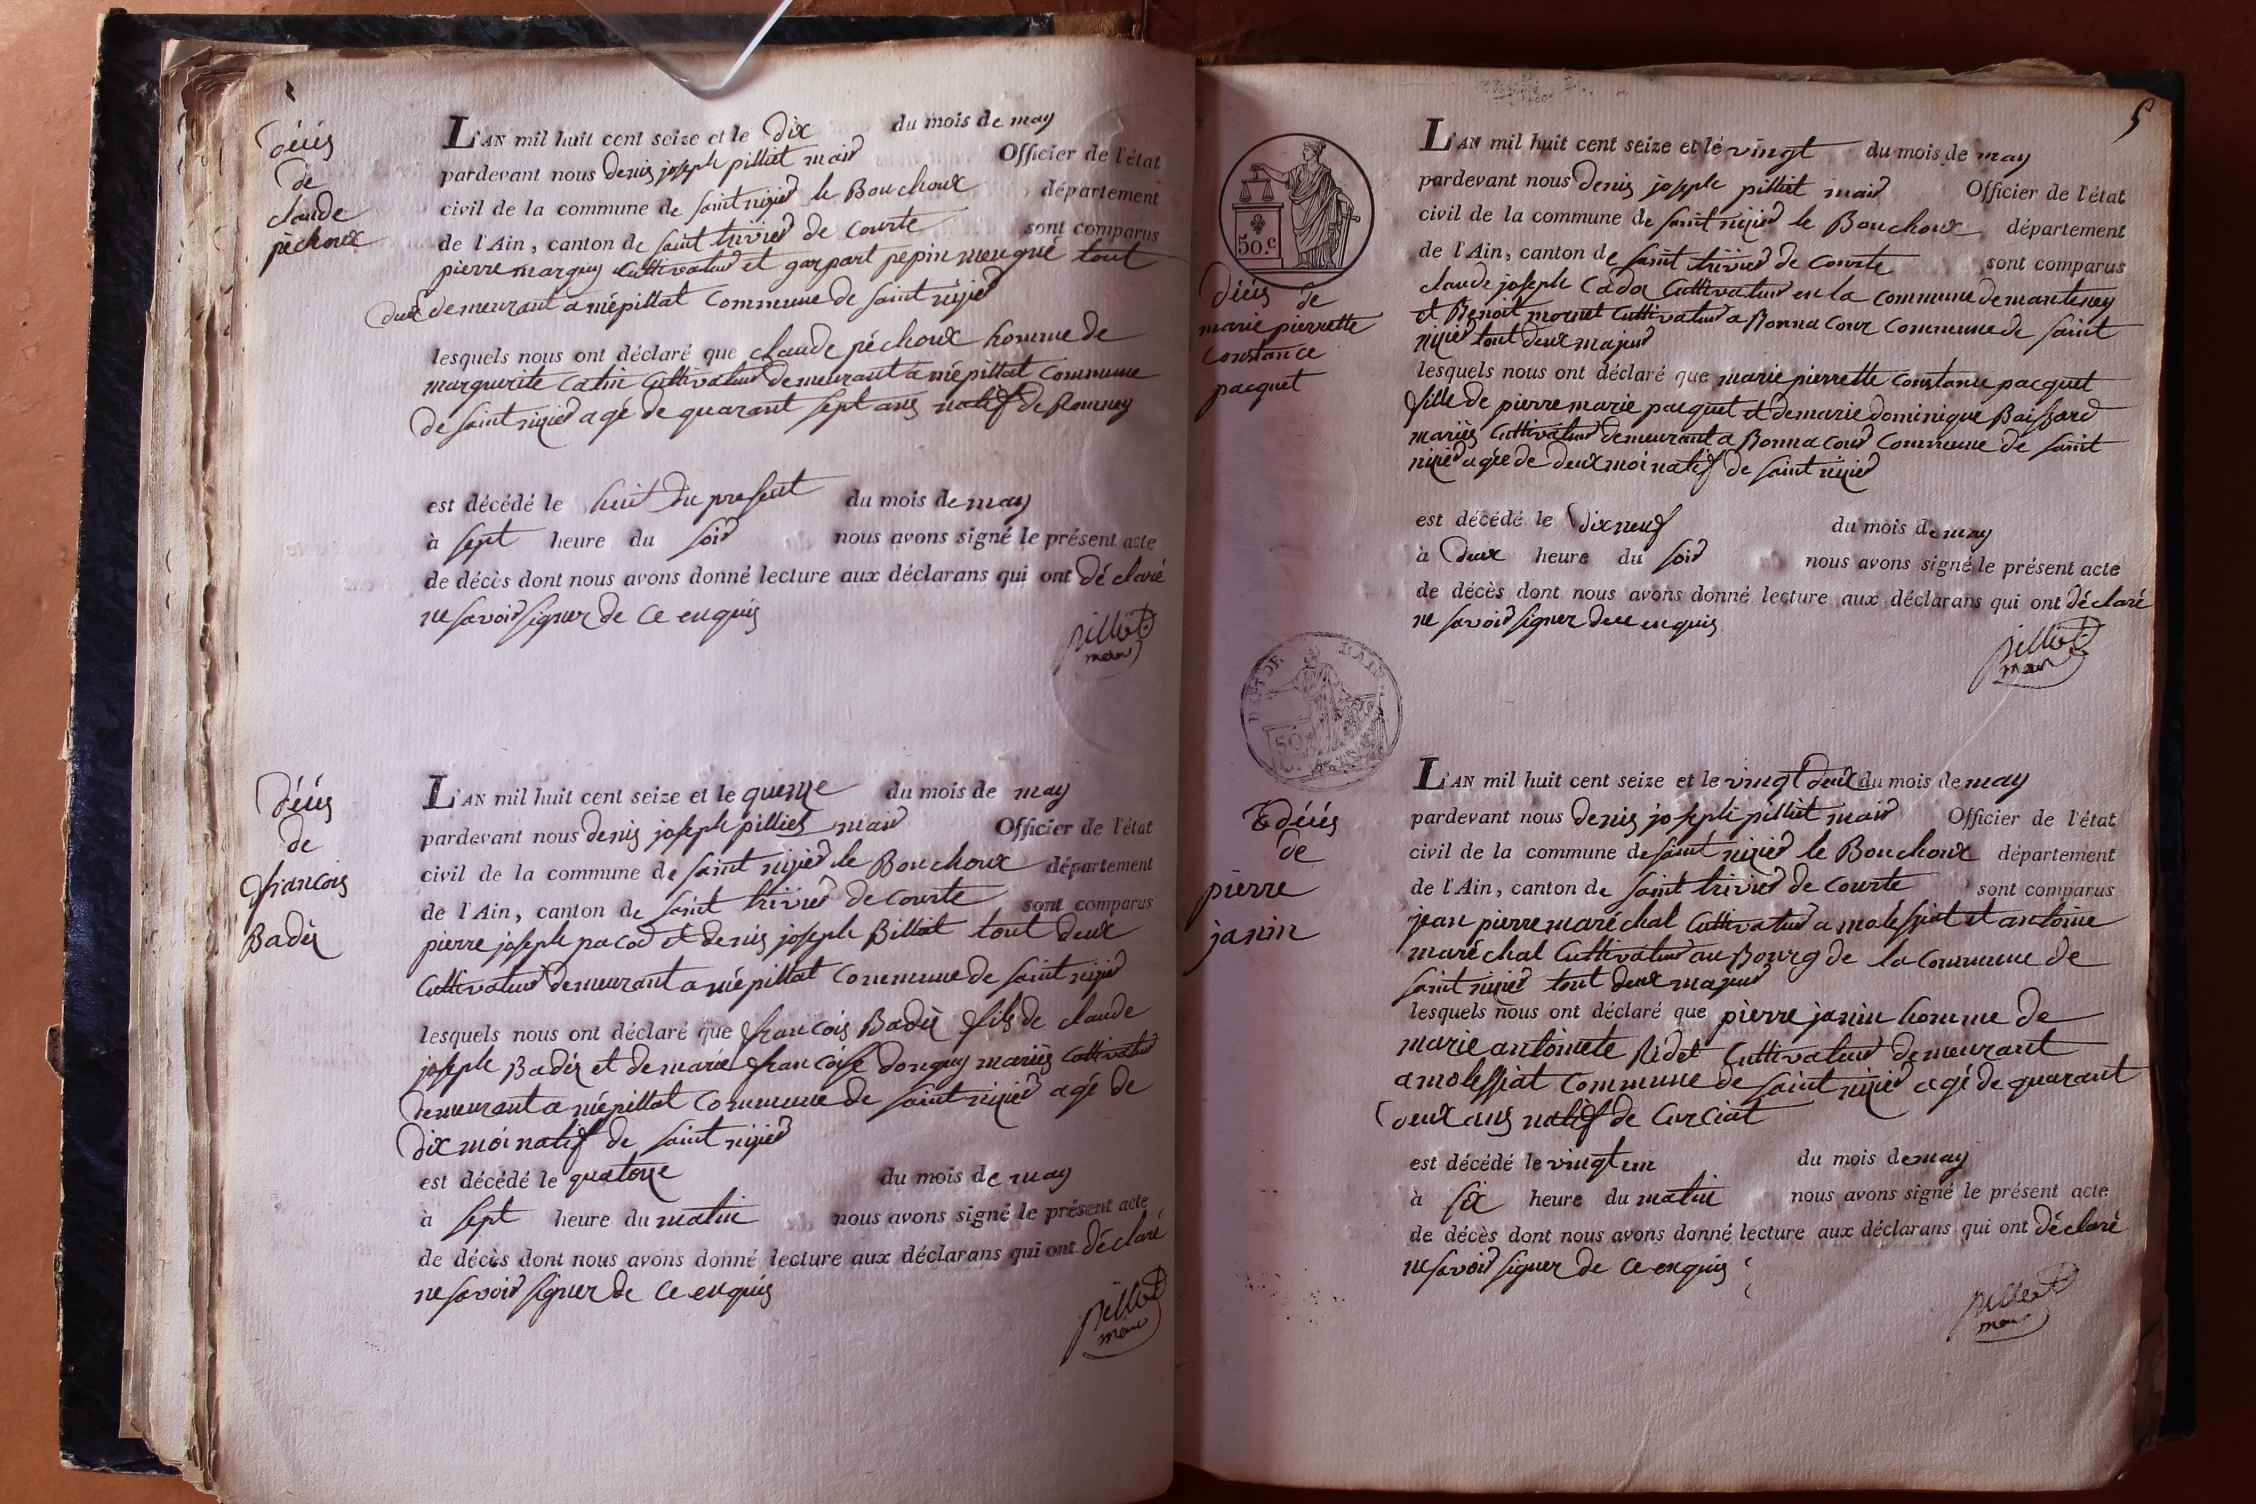 décès
de
claude
pèchoux
L'AN mil huit cent seize et le dix du mois de may
pardevant nous denis joseph pilliot mair Officier de l'état
civil de la commune de saint nizier le Bouchoux département
de l'Ain, canton de saint trivier de courte sont comparus
pierre marguy Cultivateur et gaspart pepin meugné tout
deux demeurant a mépillat commune de saint nizier
lesquels nous ont déclaré que claude péchoux homme de
marguerite Catin Cultivateur demeurant a mépillat commune
de saint nizier agé de quarant sept ans natif de Romney
est décédé le huit du present du mois de may
à sept heure du soir nous avons signé le présent acte
de décès dont nous avons donné lecture aux déclarans qui ont déclaré
ne savoir signer de ce enquis
pilliot
mair
décès
de
francois
Badèz
L'AN mil huit cent seize et le quinze du mois de may
pardevant nous denis joseph pilliet mair Officier de l'état
civil de la commune de saint nizier le Bouchoux département
de l'Ain, canton de saint trivier de courte sont comparus
pierre joseph pacod et denis joseph Billiat tout deux
Cultivateur demeurant a mépillat commune de saint nizier
lesquels nous ont déclaré que francois Badèz fils de claude
joseph Badèz et de marie francoise donguy mariés Cultivateur
demeurant a mépillat commune de saint nizier agé de
dix moi natif de saint nizier
est décédé le quatorze du mois de may
à sept heure du matin nous avons signé le présent acte
de décès dont nous avons donné lecture aux déclarans qui ont déclaré
ne savoir signer de ce enquis
pilliot
mair
5
50.c
décès de
marie pierrette
Constance
pacquet
L'AN mil huit cent seize et le vingt du mois de may
pardevant nous denis joseph pilliot mair Officier de l'état
civil de la commune de saint nizier le Bouchoux département
de l'Ain, canton de saint trivier de courte sont comparus
claude joseph Cadoz Cultivateur en la commune de manteney
et Benoit mornet Cultivateur a Bonna Cour Commune de saint
nizier tout deux majeur
lesquels nous ont déclaré que marie pierrette constance pacquet
fille de pierre marie pacquet et de marie dominique Baissard
mariés Cultivateur demeurant a Bonna Cour Commune de saint
nizier agée de deux moi natif de saint nizier
est décédé le dixneuf du mois de may
à deux heure du soir nous avons signé le présent acte
de décès dont nous avons donné lecture aux déclarans qui ont déclaré
ne savoir signer de ce enquis
pilliot
mair
décès
de
pierre
janin
L'AN mil huit cent seize et le vingt deux du mois de may
pardevant nous denis joseph pilliot mair Officier de l'état
civil de la commune de saint nizier le Bouchoux département
de l'Ain, canton de saint trivier de courte sont comparus
jean pierre maréchal Cultivateur a molessiat et antoine
maréchal Cultivateur au Bourg de la commune de
saint nizier tout deux majeur
lesquels nous ont déclaré que pierre janin homme de
marie antoinete Ridet Cultivateur demeurant
a molessiat commune de saint nizier agé de quarant
deux ans natif de Curciat
est décédé le vingt un du mois de may
à six heure du matin nous avons signé le présent acte
de décès dont nous avons donné lecture aux déclarans qui ont déclaré
ne savoir signer de ce enquis
pilliot
mair